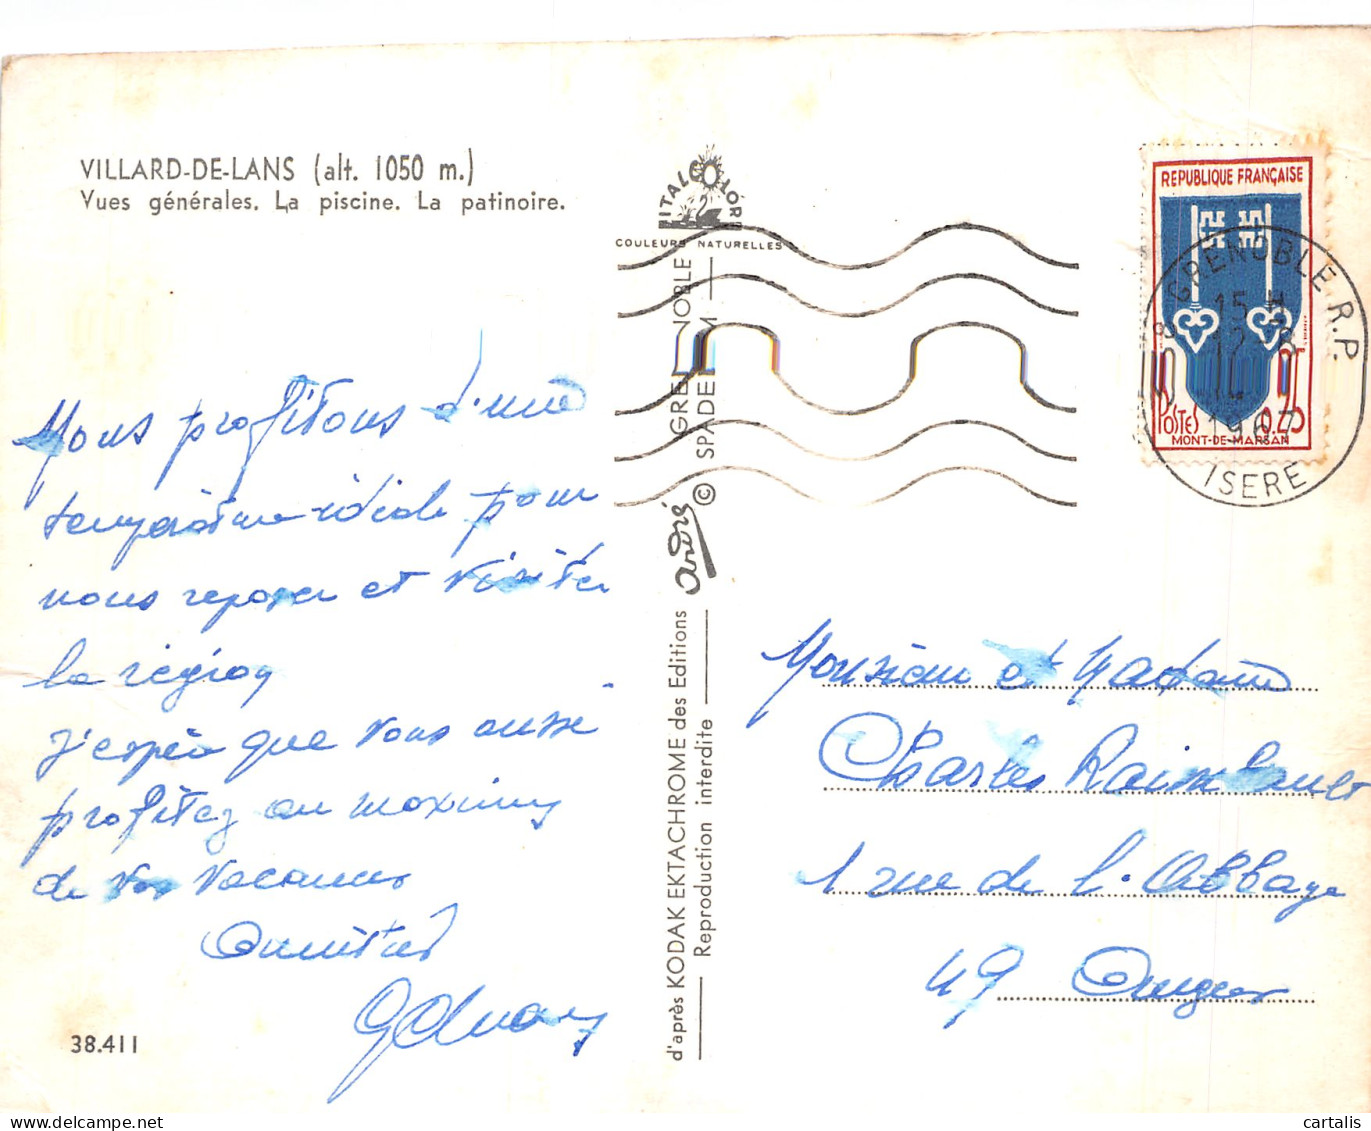 VILLARD-DE-LANS (alt. 1050 m.)
Vues générales. La piscine. La patinoire.
ITALCOLOR
COULEURS NATURELLES
REPUBLIQUE FRANÇAISE
POSTES 0,25
MONT-DE-MARSAN
GRENOBLE R.P.
15 H
12-8
1967
ISERE
GRENOBLE
© SPADEM
André
d'après KODAK EKTACHROME des Editions
Reproduction interdite
Nous profitons d'une
température idéale pour
nous reposer et visiter
la région
J'espère que vous aussi
profitez au maximum
de vos vacances
Amitiés
Monsieur et Madame
Charles Raimbault
1 rue de l'Abbaye
49 Angers
38.411
cartalis